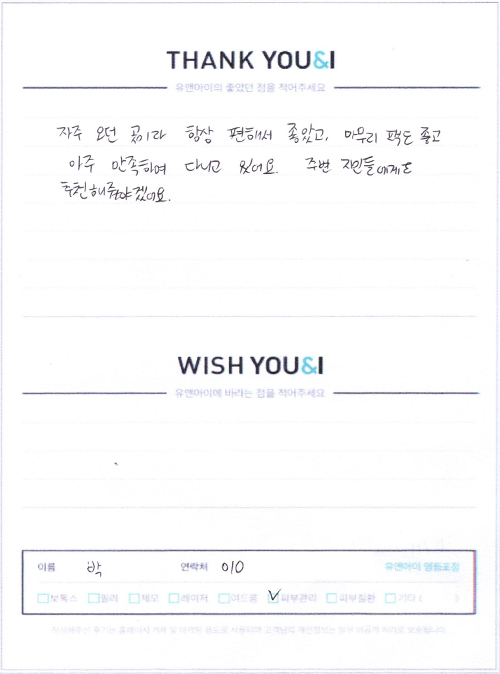 THANK YOU&I
유앤아이의 좋았던 점을 적어주세요
자주 오던 곳이라 항상 편해서 좋았고, 마무리 팩도 좋고
아주 만족하며 다니고 있어요. 주변 지인들에게도
추천해줘야겠어요.
WISH YOU&I
유앤아이에 바라는 점을 적어주세요
이름 박 연락처 010 유앤아이 영등포점
보톡스 필러 제모 레이저 여드름 피부관리 피부질환 기타 ( )